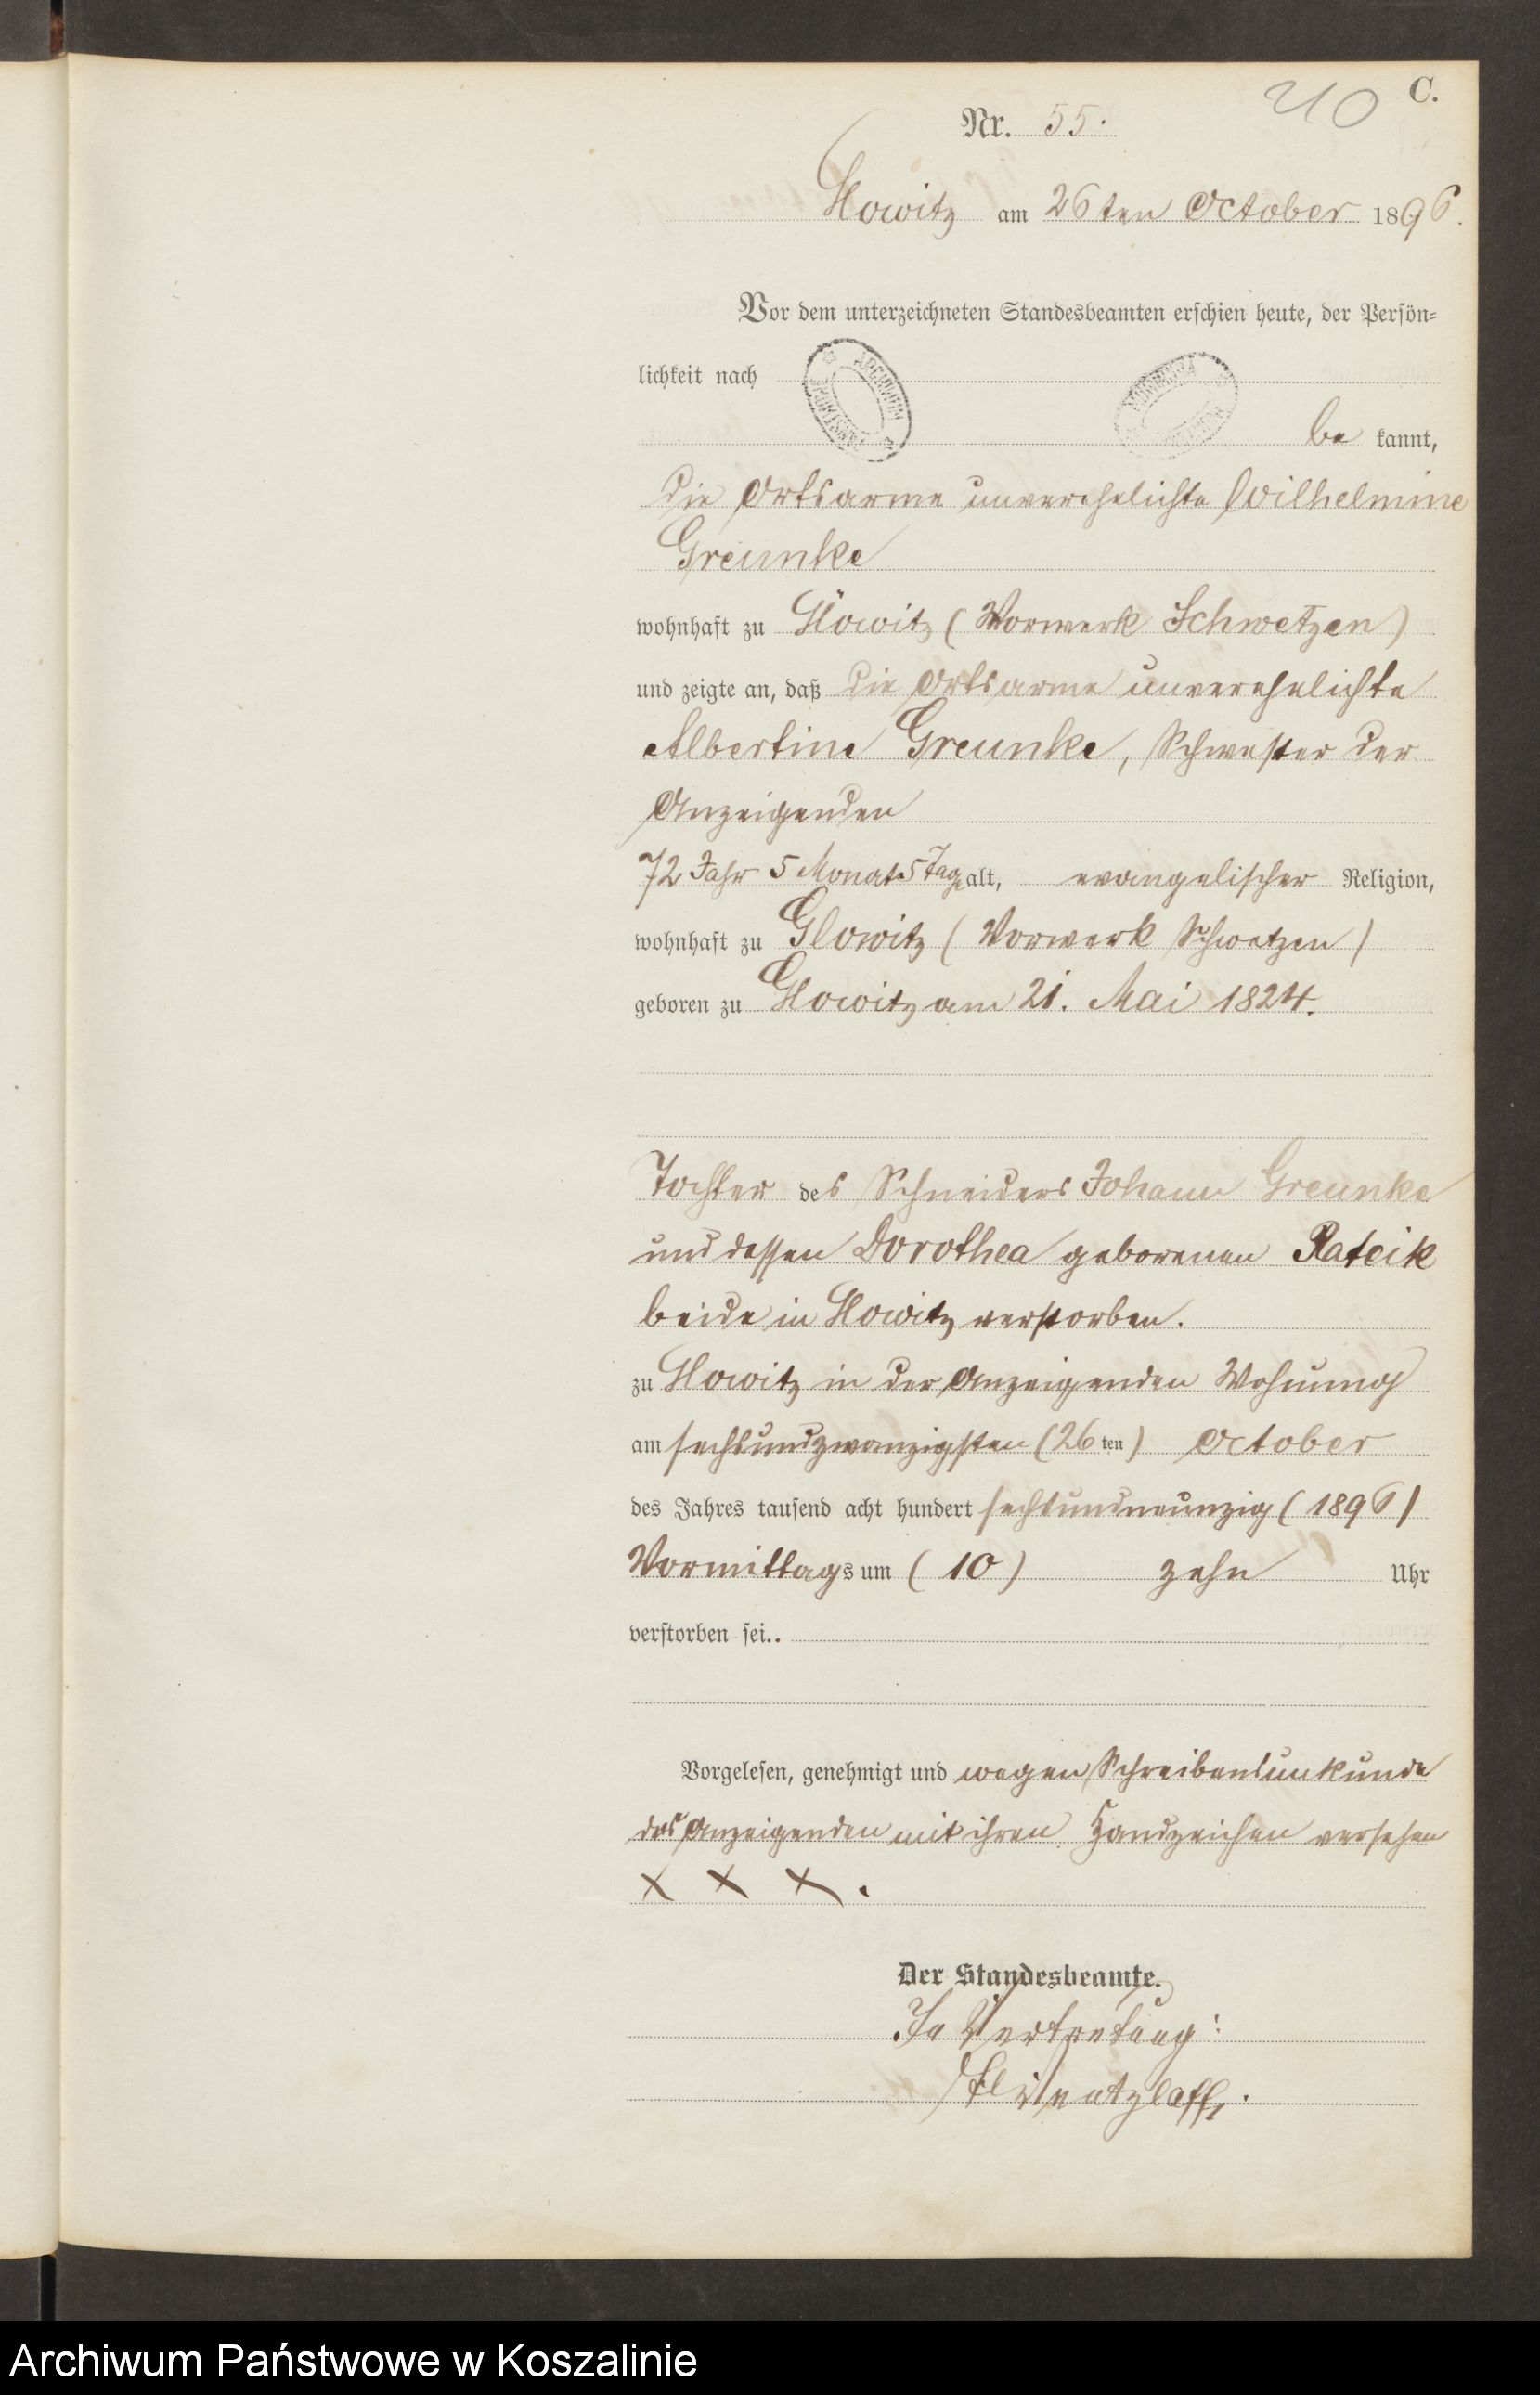 C.
210
Nr. 55.
Glowitz am 26ten October 1896.
Vor dem unterzeichneten Standesbeamten erschien heute, der Persön-
lichkeit nach
ARCHIWUM
be kannt,
die Ortsarme unverehelichte Wilhelmine
Greunke
wohnhaft zu Glowitz (Vorwerk Schwetzen)
und zeigte an, daß die Ortsarme unverehelichte
Albertine Greunke, Schwester der
Anzeigenden
72 Jahr 5 Monat 5 Tage alt, evangelischer Religion,
wohnhaft zu Glowitz (Vorwerk Schwetzen)
geboren zu Glowitz am 21. Mai 1824.
Tochter des Schneiders Johann Greunke
und dessen Dorothea geborenen Rateik
beide in Glowitz verstorben.
zu Glowitz in der Anzeigenden Wohnung
am sechsundzwanzigsten (26ten) October
des Jahres tausend acht hundert sechsundneunzig (1896)
Vormittags um (10) zehn Uhr
verstorben sei..
Vorgelesen, genehmigt und wegen Schreibensunkunde
des Anzeigenden mit ihren Handzeichen versehen
x x x.
Der Standesbeamte.
In Vertretung:
Archiwum Państwowe w Koszalinie